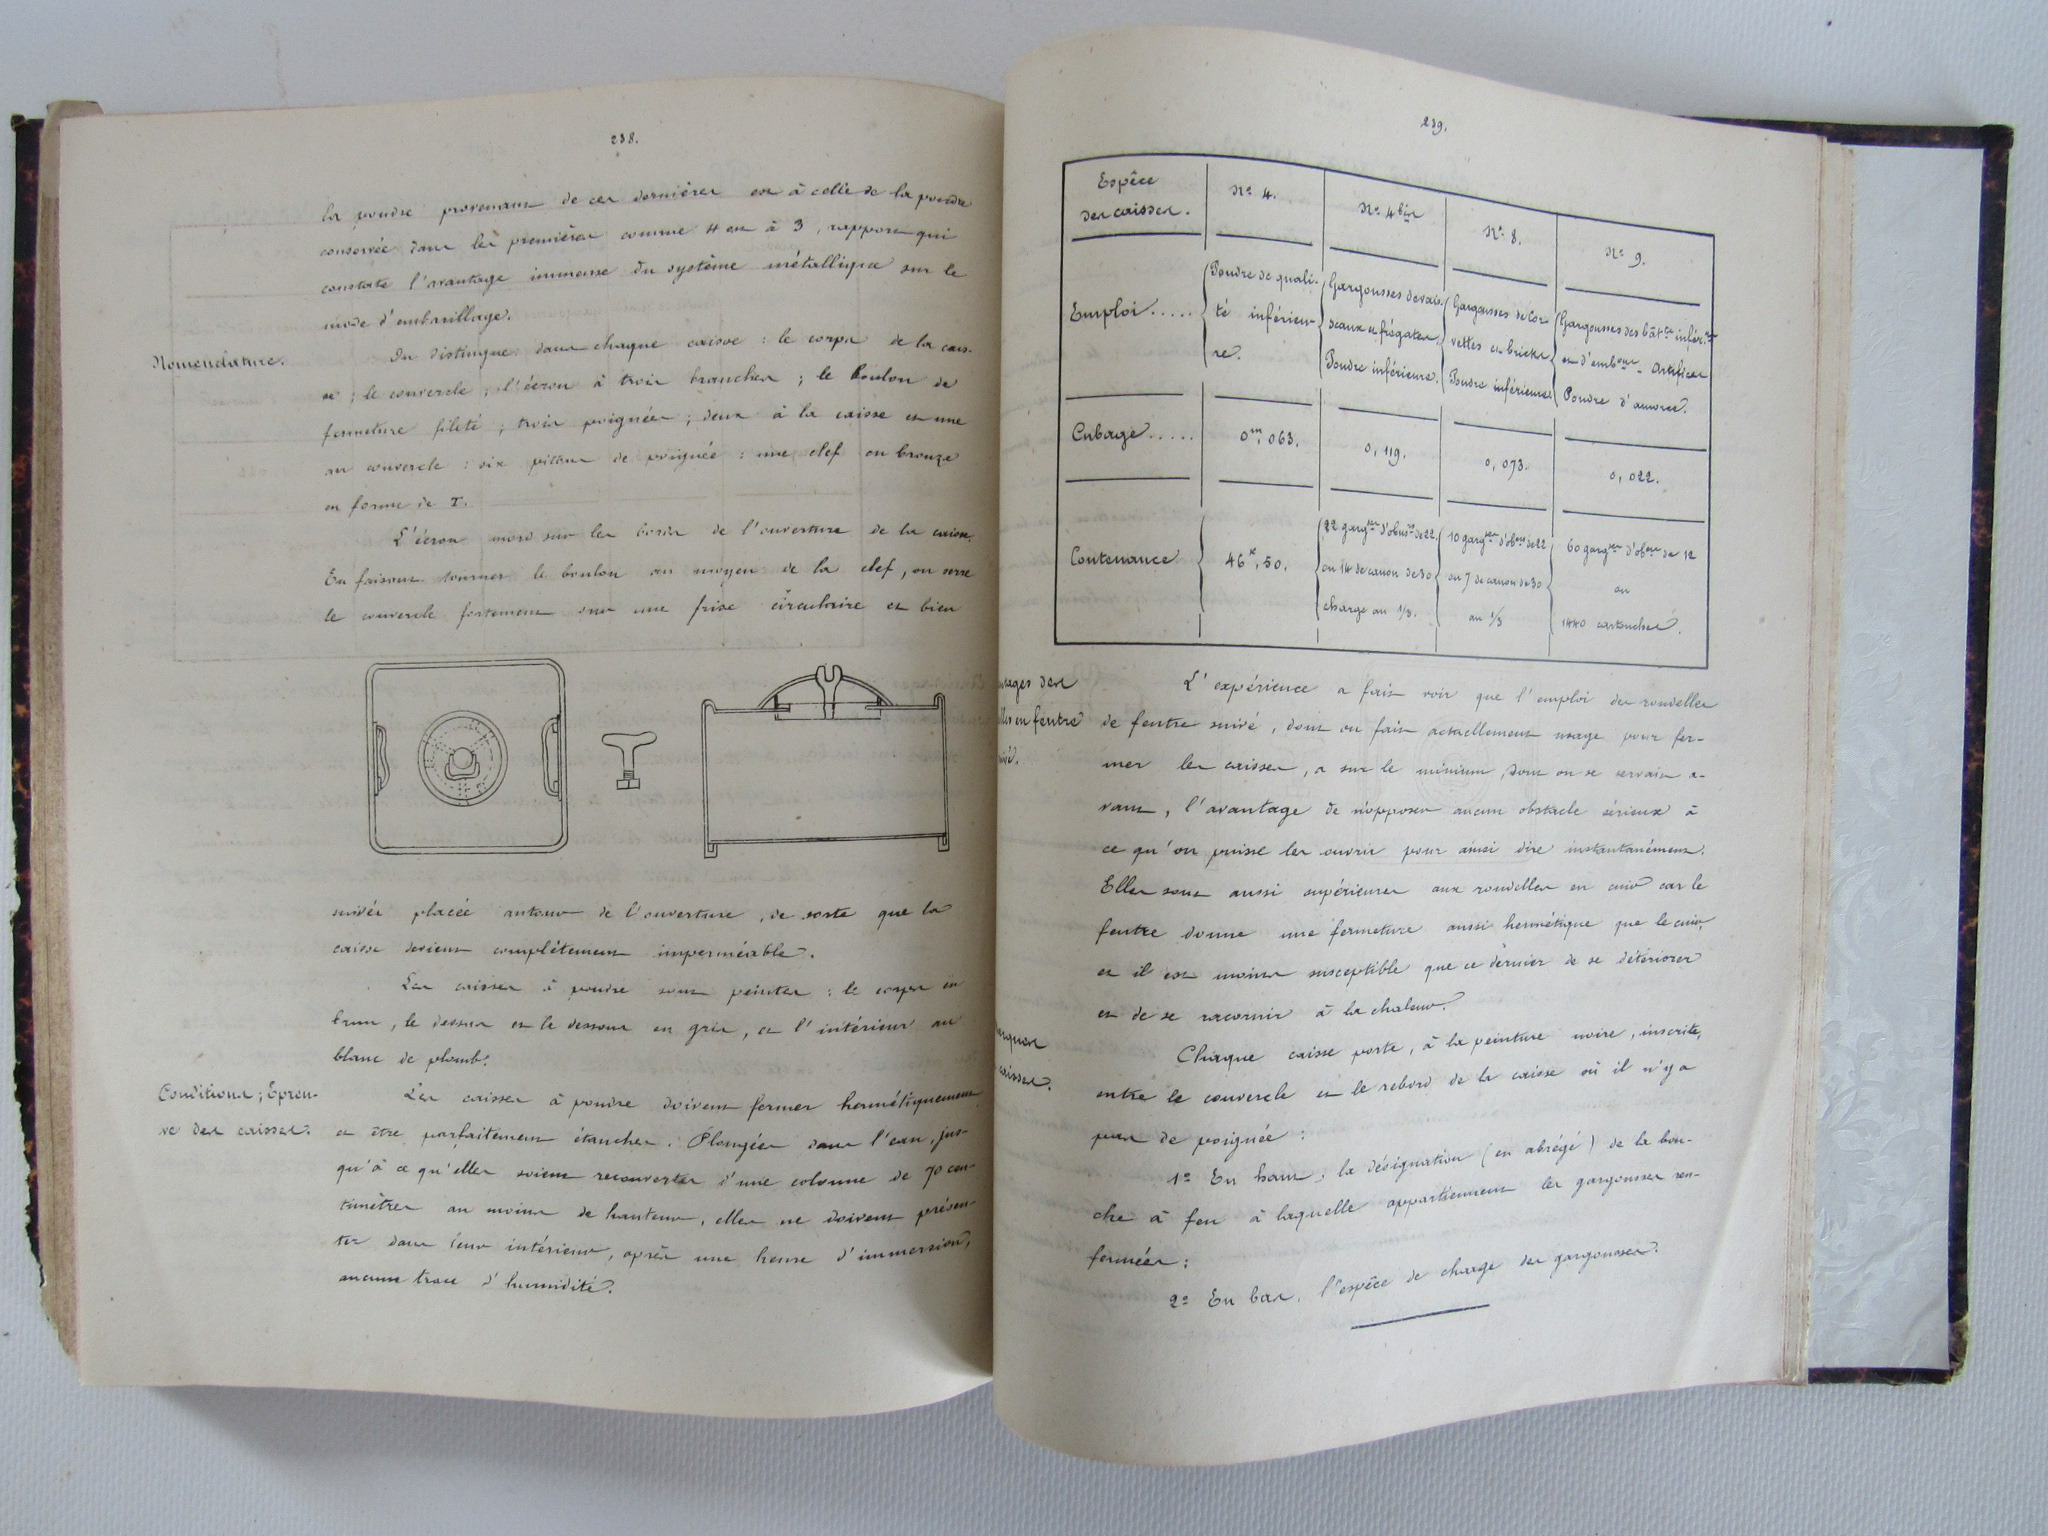 238.
la poudre provenant de ces dernières est à celle de la poudre
conservée dans les premières comme 4 est à 3, rapport qui
constate l'avantage immense du système métallique sur le
mode d'embarillage.
Nomenclature.
On distingue dans chaque caisse : le corps de la cais-
se ; le couvercle ; l'écrou à trois branches ; le boulon de
fermeture fileté ; trois poignées ; deux à la caisse et une
au couvercle : six pitons de poignée : une clef en bronze
en forme de T.
L'écrou mord sur les bords de l'ouverture de la caisse.
En faisant tourner le boulon au moyen de la clef, on serre
le couvercle fortement sur une frise circulaire et bien
suivée placée autour de l'ouverture, de sorte que la
caisse devient complétement imperméable.
Les caisses à poudre sont peintes : le corps en
brun, le dessus et le dessous en gris, et l'intérieur au
blanc de plomb.
Conditions ; Epreu-
ve des caisses.
Les caisses à poudre doivent fermer hermétiquement
et être parfaitement étanches. Plongées dans l'eau, jus-
qu'à ce qu'elles soient recouvertes d'une colonne de 70 cen-
timètres au moins de hauteur, elles ne doivent présen-
ter dans leur intérieur, après une heure d'immersion,
aucune trace d'humidité.
239.
Espêce
des caisses. N° 4. N° 4 bis N° 8. N° 9.
Emploi..... Poudre de quali- Gargousses de vais- Gargousses de Cor- Gargousses des bât.ts infér.rs
té inférieu- seaux et frégates. vettes et bricks et d'emb.ons - Artifices
re. Poudre inférieure. Poudre inférieure Poudre d'amorce.
Cubage..... 0m,063. 0,119. 0,073. 0,022.
Contenance 46k,50. 22 garg.ses d'obus.rs de 22 10 garg.ses d'ob.ers de 22 60 garg.ses d'ob.ers de 12
ou 14 de canon de 30 ou 7 de canon de 30 ou
charge au 1/3. au 1/3 1440 cartouches.
tages des
lles en feutre
L'expérience a fait voir que l'emploi des rondelles
de feutre suivé, dont on fait actuellement usage pour fer-
mer les caisses, a sur le minium, dont on se servait a-
vant, l'avantage de n'opposer aucun obstacle sérieux à
ce qu'on puisse les ouvrir pour ainsi dire instantanément.
Elles sont aussi supérieures aux rondelles en cuir car le
feutre donne une fermeture aussi hermétique que le cuir,
et il est moins susceptible que ce dernier de se détériorer
et de se racornir à la chaleur.
arques
caisses.
Chaque caisse porte, à la peinture noire, inscrite,
entre le couvercle et le rebord de la caisse où il n'y a
pas de poignée :
1° En haut, la désignation (en abrégé) de la bou-
che à feu à laquelle appartiennent les gargousses ren-
fermées ;
2° En bas, l'espèce de charge des gargousses.